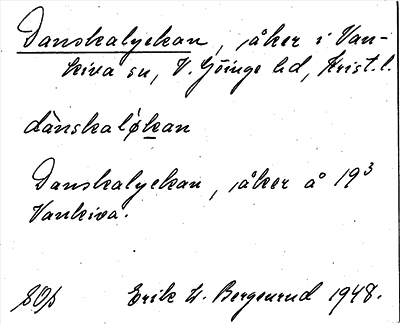 Danskalyckan, åker i Van-
kiva sn, V. Göinge hd, Krist. l.
dànskalỳkan
Danskalyckan, åker å 19³
Vankiva.
Erik H. Bergenrud 1948.